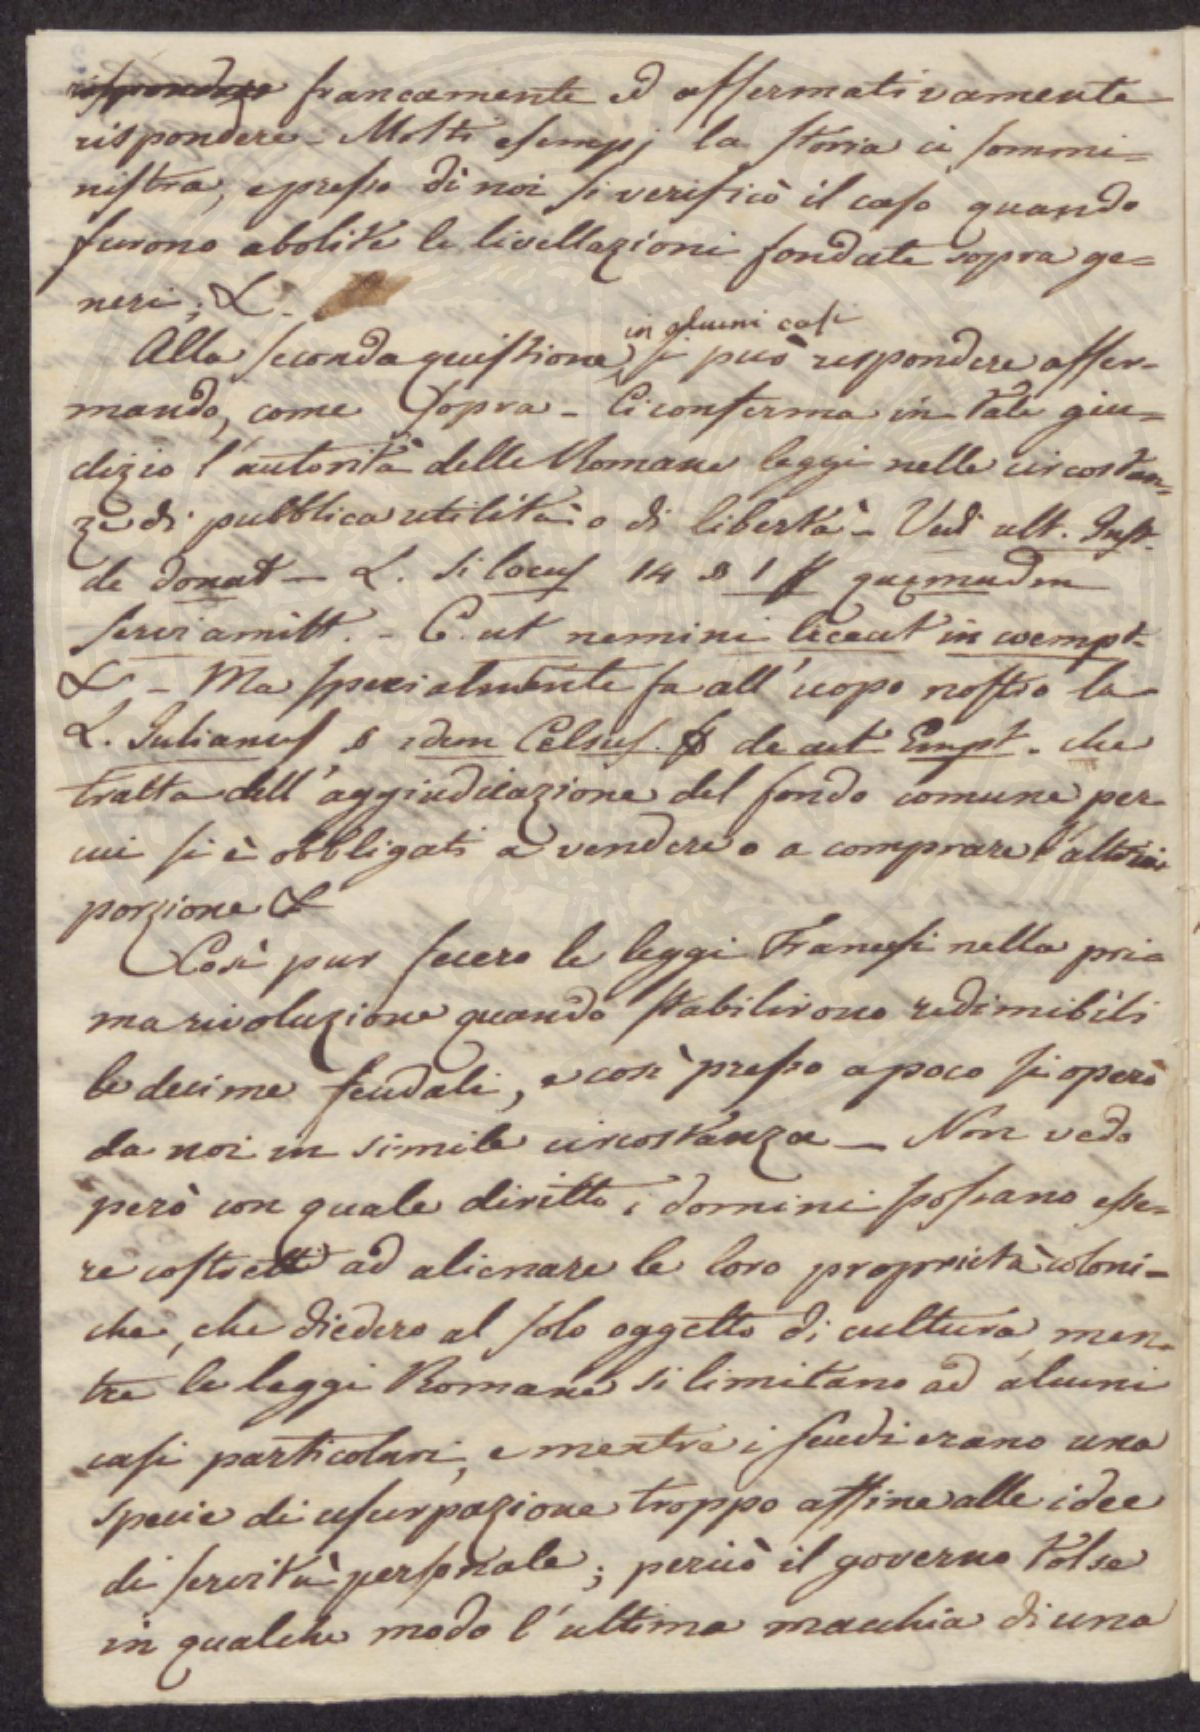 rispondere francamente ed affermativamente
rispondere – Molti esempj la storia ci sommi=
nistra, e presso di noi si verificò il caso quando
furono abolite le livellazioni fondate sopra ge=
neri; &.
in alcuni casi
Alla seconda quistione si può rispondere affer-
mando, come sopra – Ci conferma in tale giu=
dizio l'autorità delle Romane leggi nelle circostan=
ze di pubblica utilità o di libertà – Vedi ult. Inst.
de donat – L. si locus 14 § 1 ff quemadm
servi amitt. – C. ut nemini liceat in coempt.
& – Ma specialmente fa all'uopo nostro la
L. Julianus § idem Celsus. ff de act Empt. che
tratta dell'aggiudicazione del fondo comune per
cui si è obbligati a vendere o a comprare l'altrui
porzione &
Così pur fecero le leggi Francesi nella pri=
ma rivoluzione quando stabilirono redimibili
le decime feudali, e così presso a poco si operò
da noi in simile circostanza – Non vedo
però con quale diritto i domini possano esse=
re costretti ad alienare le loro proprietà coloni=
che, che diedero al solo oggetto di cultura, men=
tre le leggi Romane si limitano ad alcuni
casi particolari, e mentre i feudi erano una
specie di usurpazione troppo affine alle idee
di servitù personale; perciò il governo tolse
in qualche modo l'ultima macchia di una